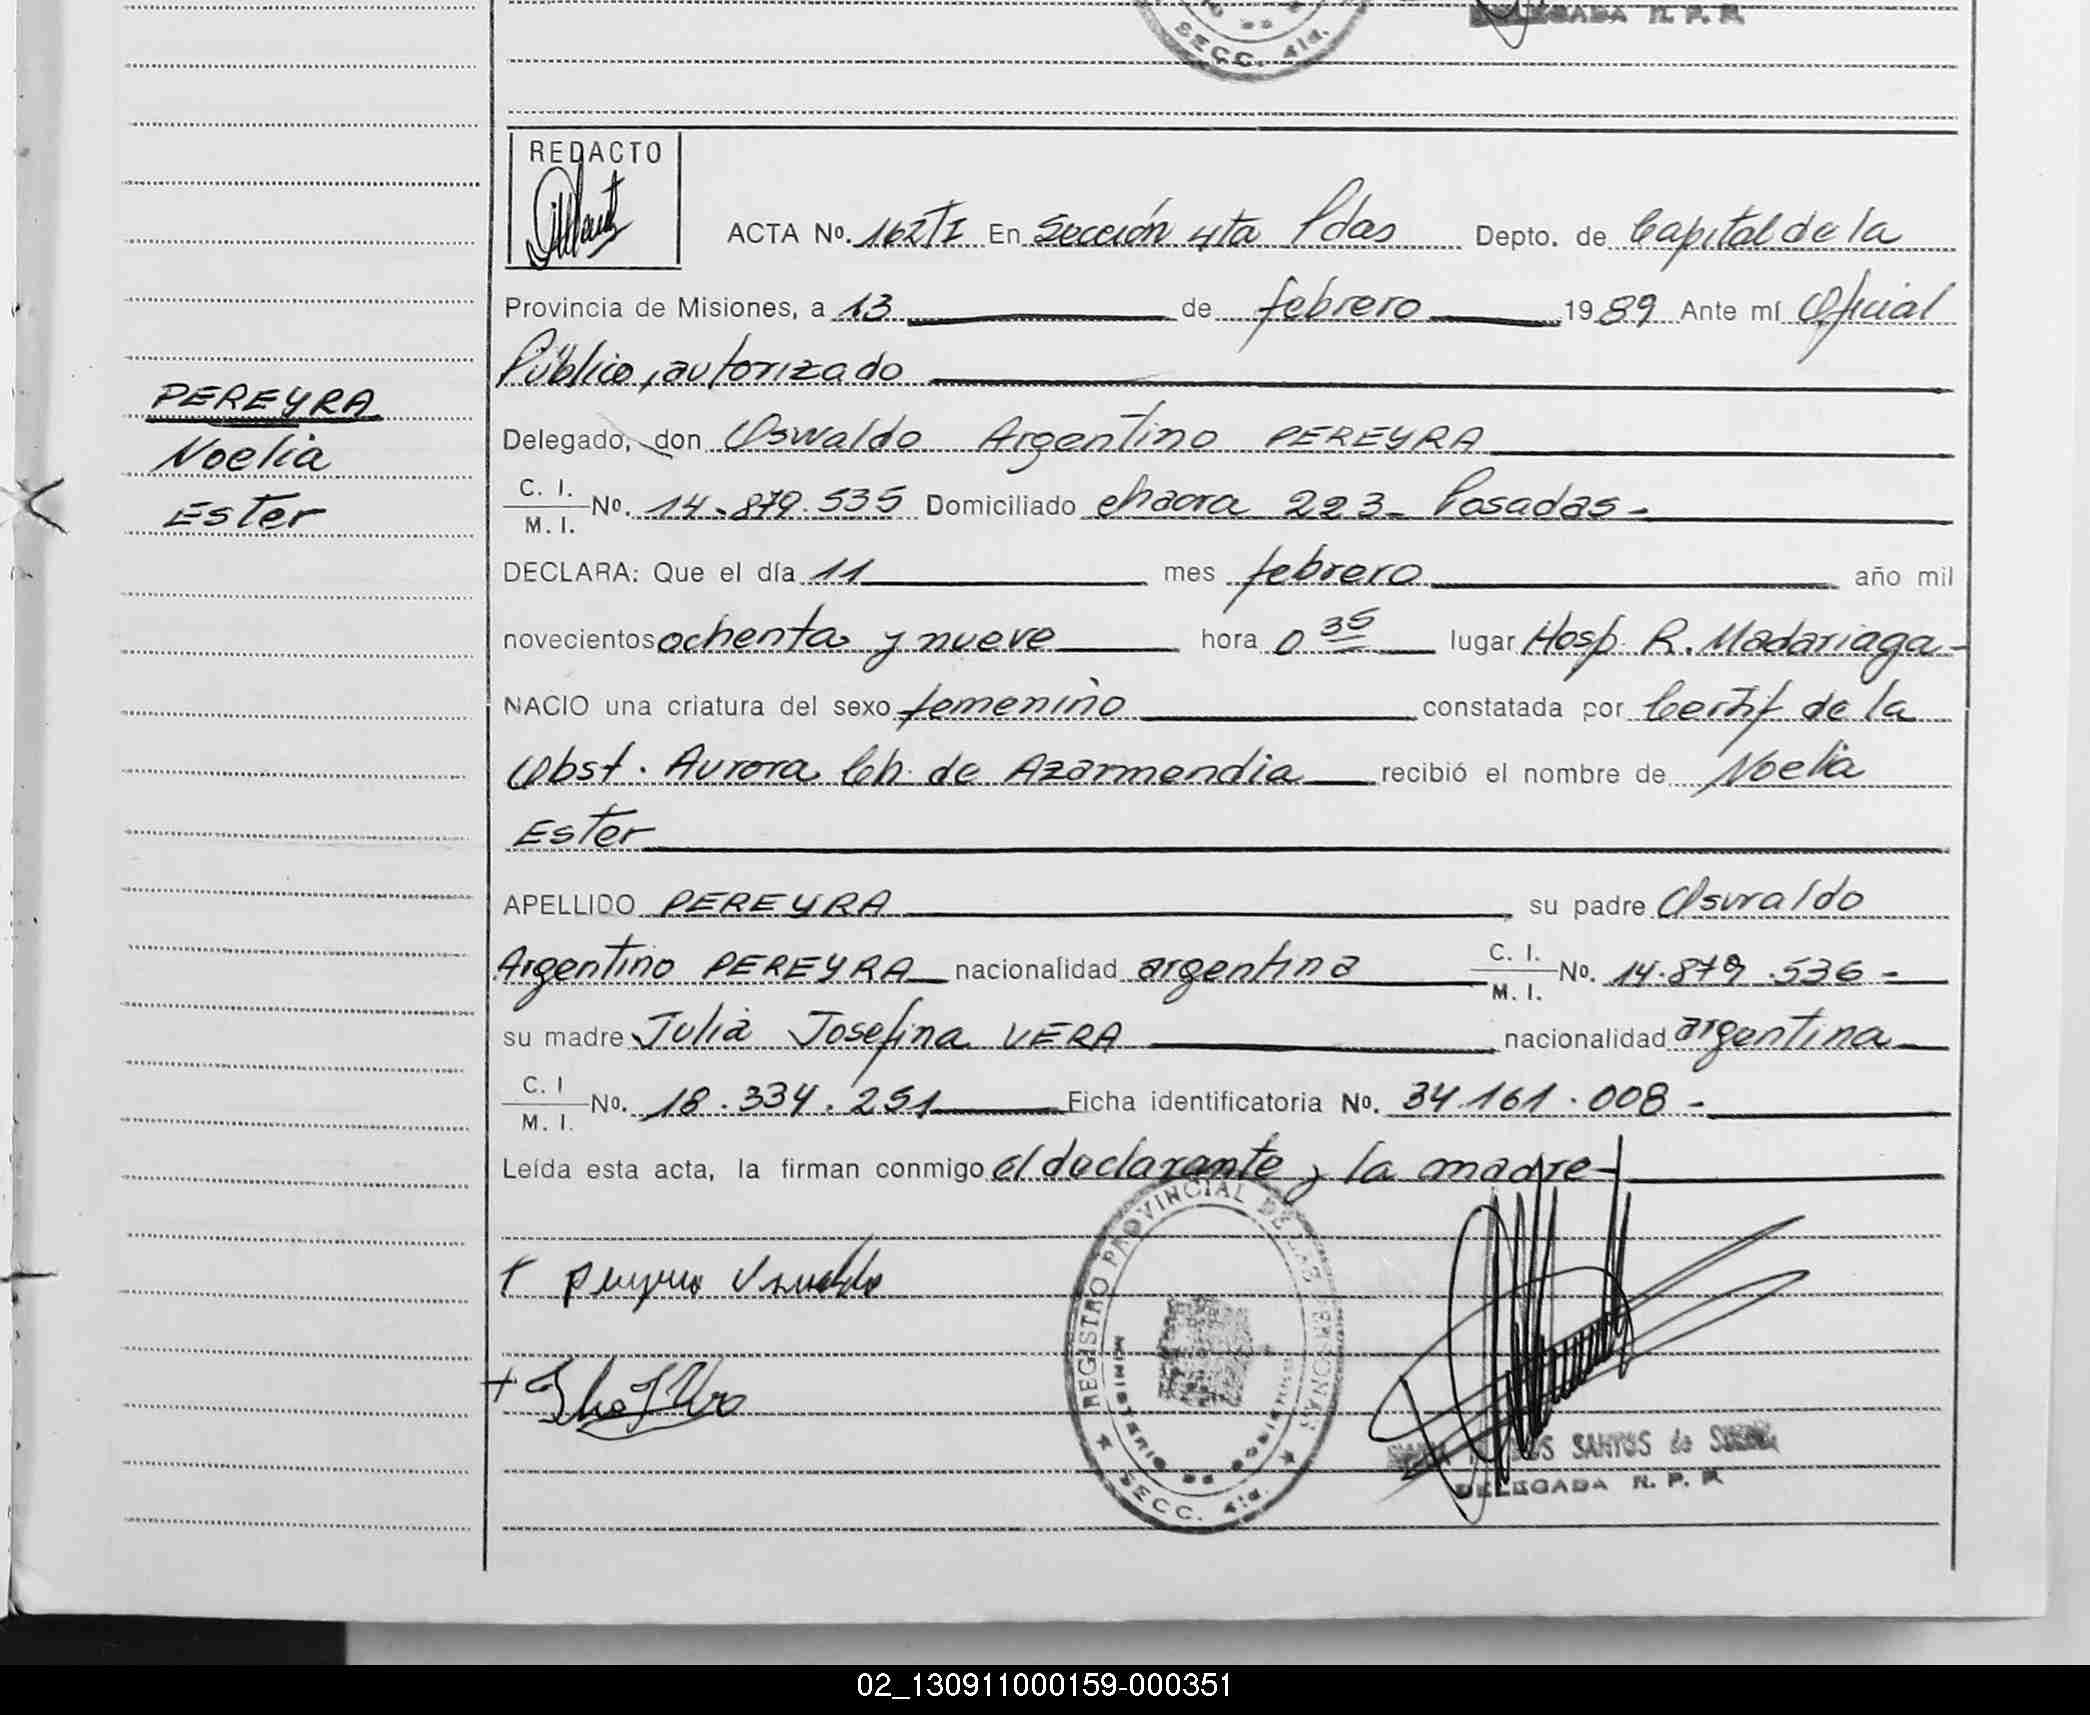 SECC. 4ta.
DELEGADA R. P. P.
REDACTO
ACTA No. 162TI En Sección 4ta Pdas Depto. de Capital de la
Provincia de Misiones, a 13 de febrero 1989 Ante mí Oficial
Público, autorizado
PEREYRA
Noelia
Ester
Delegado, don Oswaldo Argentino PEREYRA
C. I.
M. I. No. 14.879.535 Domiciliado chacra 223- Posadas-
DECLARA: Que el día 11 mes febrero año mil
novecientos ochenta y nueve hora 0 35 lugar Hosp. R. Madariaga-
NACIO una criatura del sexo femenino constatada por Certif de la
Obst. Aurora Ch. de Azarmendia recibió el nombre de Noelia
Ester
APELLIDO PEREYRA su padre Osvaldo
Argentino PEREYRA nacionalidad argentina C. I.
M. I. No. 14.879.536-
su madre Julia Josefina VERA nacionalidad argentina
C. I
M. I. No. 18.334.251 Ficha identificatoria No. 34.161.008-
Leída esta acta, la firman conmigo el declarante y la madre-
REGISTRO PROVINCIAL DE LAS PERSONAS
MINISTERIO DE GOBIERNO
SECC. 4ta.
Pereyra Osvaldo
SANTOS de
DELEGADA R. P. P.
02_130911000159-000351